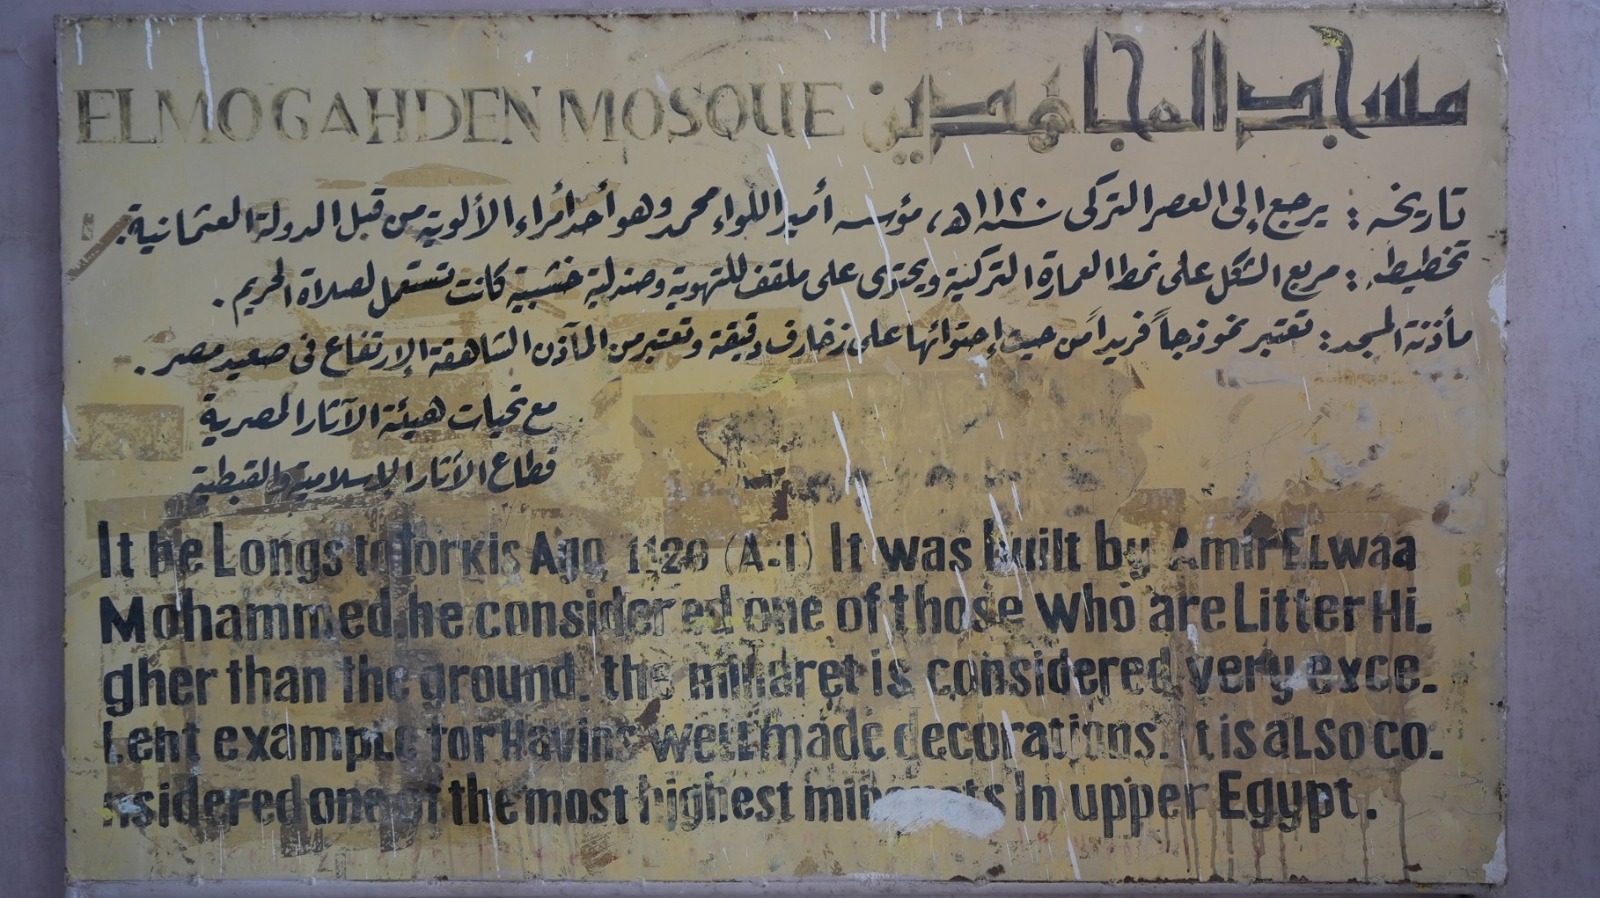 مسجد المجاهدين ELMOGAHDEN MOSQUE
تاريخه : يرجع إلى العصر التركى سنة ١١٢٠هـ، مؤسسه أمير اللواء محمد وهو أحد أمراء الألوية من قبل الدولة العثمانية.
تخطيطه : مربع الشكل على نمط العمارة التركية ويحتوى على ملقف للتهوية وصندلية خشبية كانت تستعمل لصلاة الحريم .
مأذنة المسجد : تعتبر نموذجاً فريداً من حيث إحتوائها على زخارف دقيقة وتعتبر من المآذن الشاهقة الإرتفاع فى صعيد مصر .
مع تحيات هيئة الآثار المصرية
قطاع الآثار الإسلامية والقبطية
It be Longs to Torkis Ago 1120 (A.I) It was built by Amir ELwaa
Mohammed, he considered one of those who are Litter Hi.
gher than the ground. the minaret is considered very exce.
Lent example for Having weLL made decorations. It is aLso co.
nsidered one of the most highest minarets In upper Egypt.